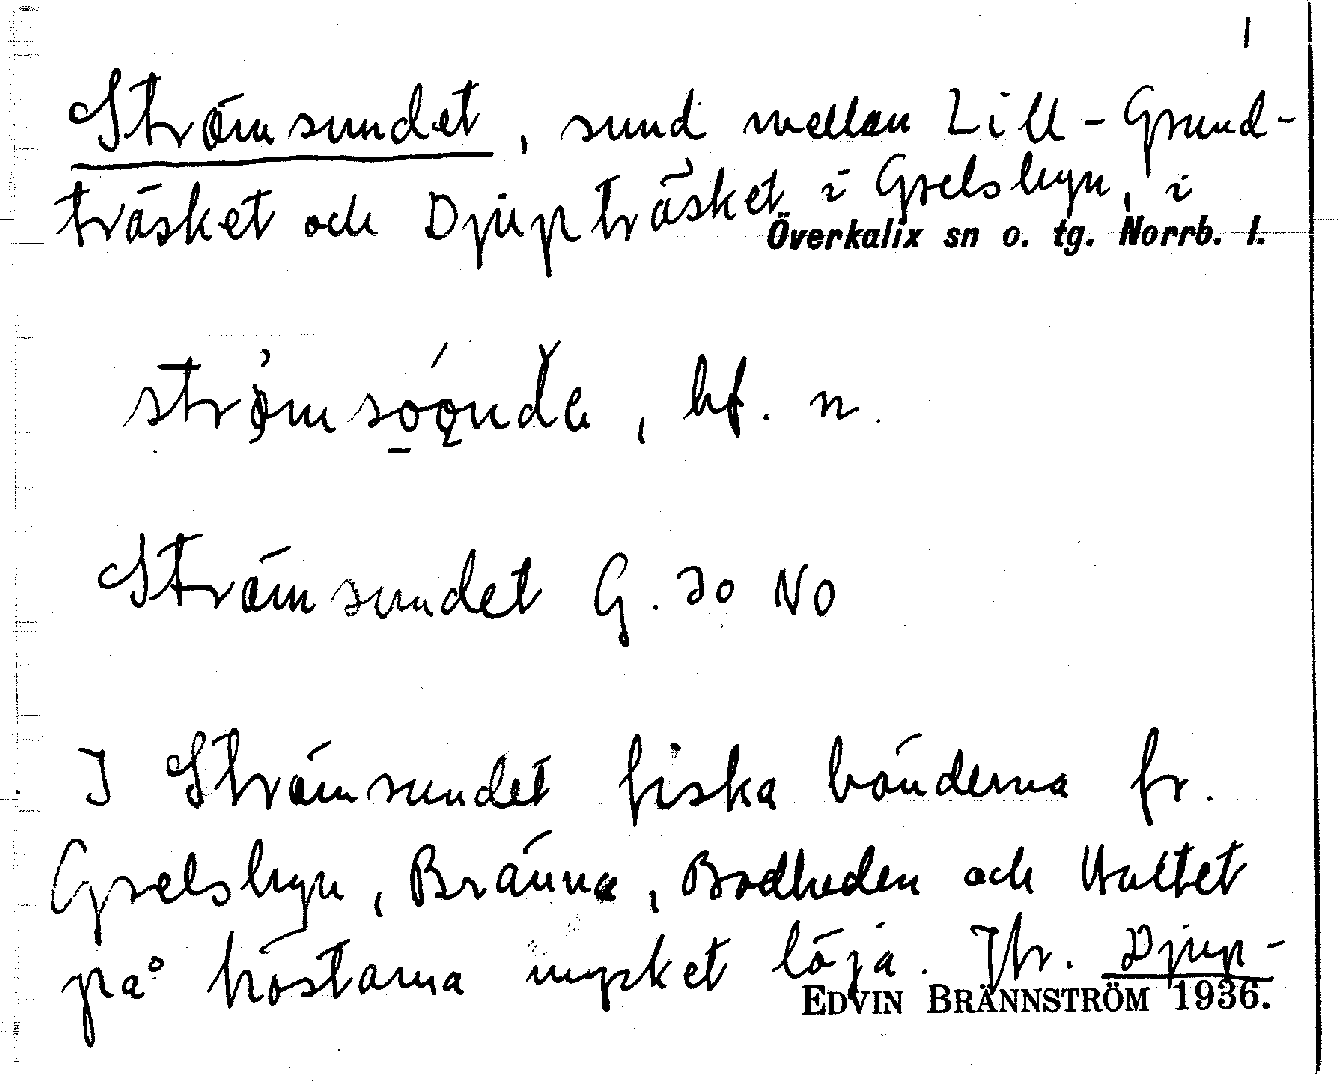 1
Strömsundet, sund mellan Lill-Grund-
träsket och Djupträsket i Grelsbyn, i
Överkalix sn o. tg. Norrb. l.
bf. n.
Strömsundet G. 30 NO
I Strömsundet fiska bönderna fr.
Grelsbyn, Bränna, Bodheden och Vattet
på höstarna mycket löja. Jfr. Djup-
EDVIN BRÄNNSTRÖM 1936.